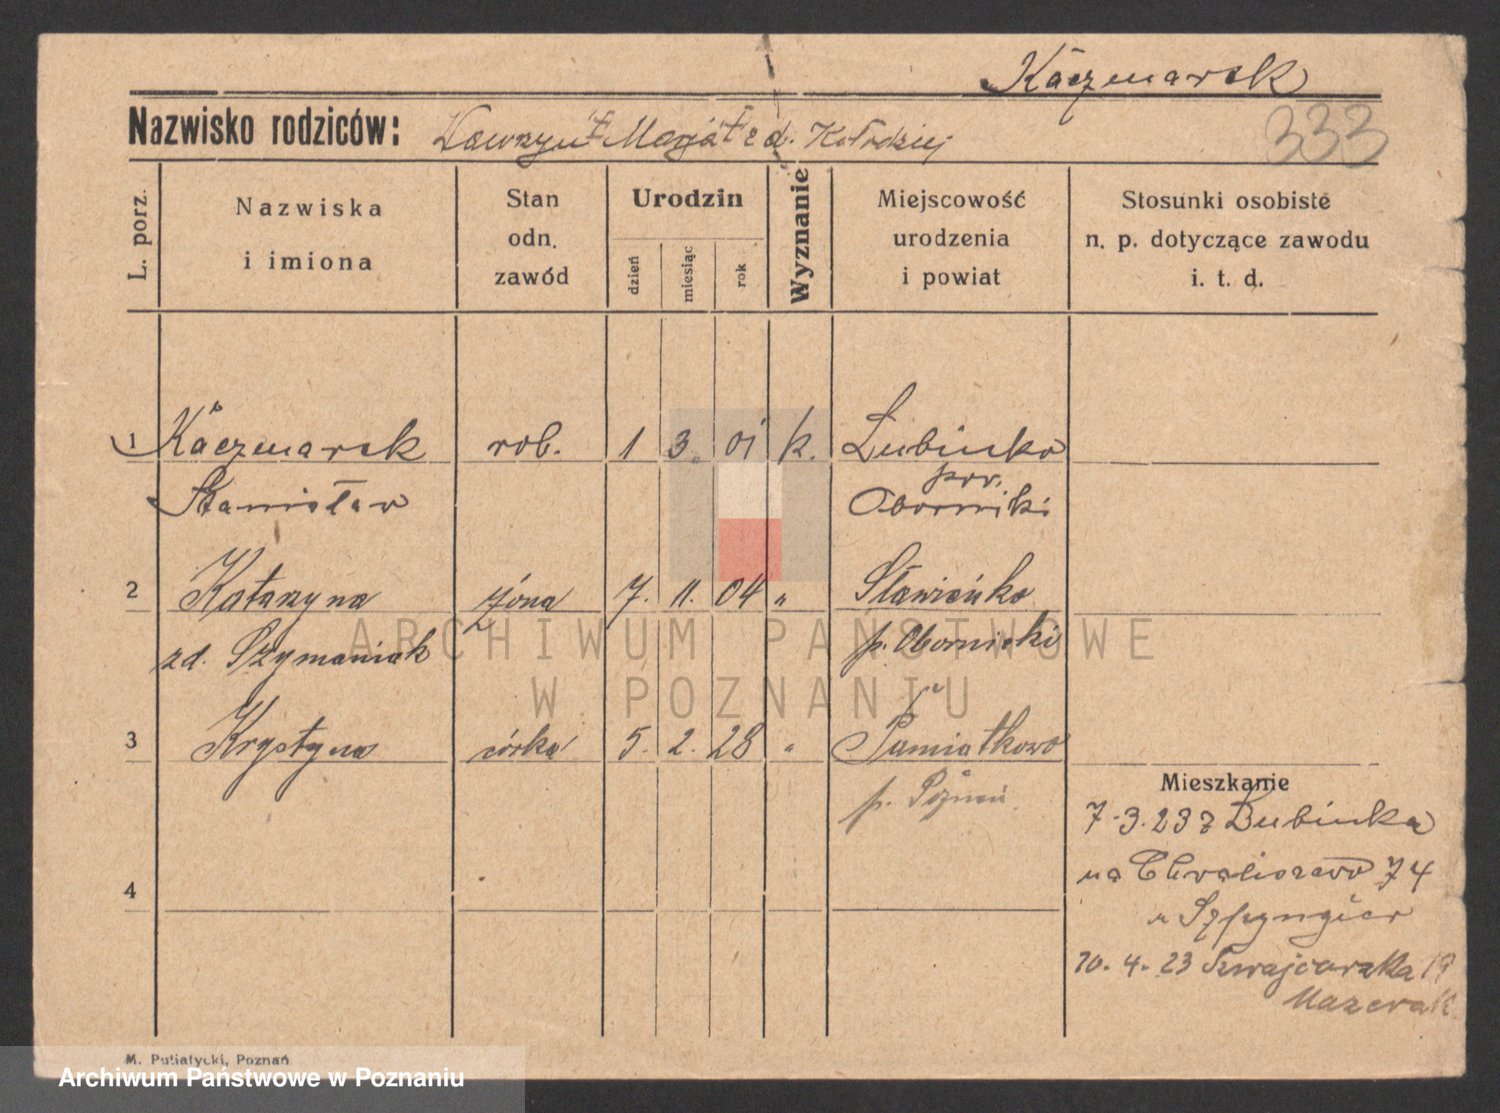 Kaczmarek
333
Nazwisko rodziców: Wawrzyn † Marja † zd. Kołodziej
L. porz.
Nazwiska
i imiona
Stan
odn.
zawód
Urodzin
dzień
miesiąc
rok
Wyznanie
Miejscowość
urodzenia
i powiat
Stosunki osobiste
n. p. dotyczące zawodu
i. t. d.
1 Kaczmarek rob. 1 3. 01 k. Lubinko
Stanisław pow. Oborniki
2 Katarzyna żona 7. 11. 04 „
zd. Szymaniak p. Obornicki
ARCHIWUM PAŃSTWOWE
W POZNANIU
3 Krystyna córka 5. 2. 28 „ Pamiątkowo
p. Poznań
Mieszkanie
7.3.23 z
na Chwaliszewo 74
4
u
10.4.23 19
M. Putiatycki, Poznań
Archiwum Państwowe w Poznaniu